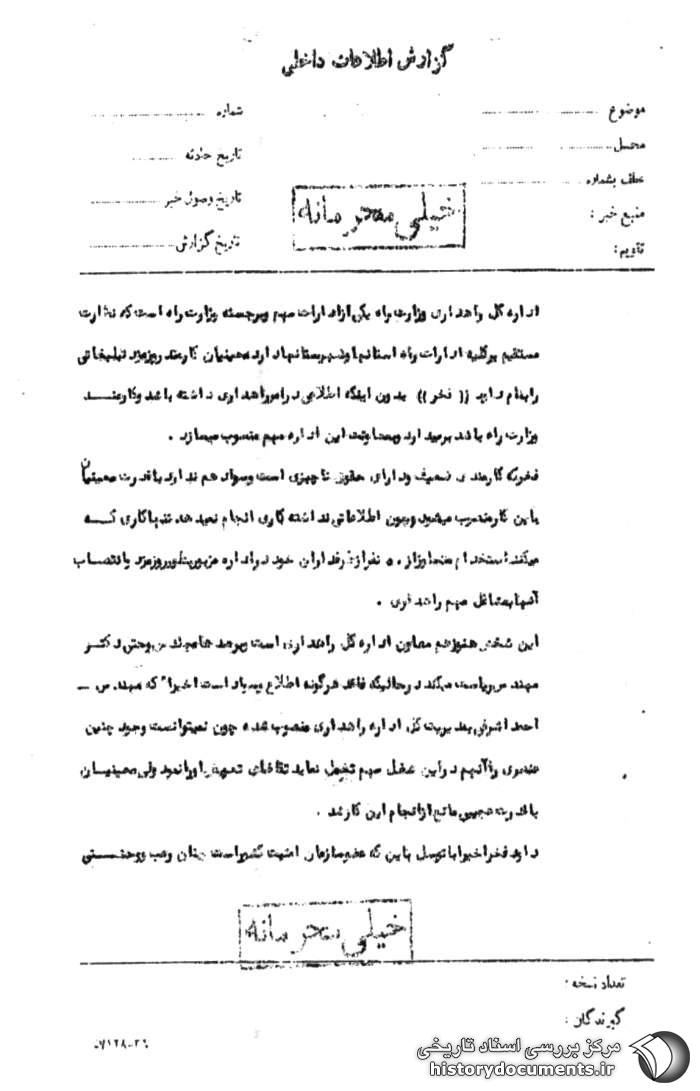 گزارش اطلاعات داخلی
موضوع
شماره
محل
تاریخ حادثه
عطف بشماره
تاریخ وصول خبر
منبع خبر :
تاریخ گزارش
تقویم :
خیلی محرمانه
اداره کل راهداری وزارت راه یکی از ادارات مهم وبرجسته وزارت راه است که نظارت
مستقیم برکلیه ادارات راه استانها وشهرستانها دارد معینیان کارمند روزمزد تبلیغاتی
را بنام داود (( فخر )) بدون اینکه اطلاعی در امر راهداری داشته باشد وکارمند
وزارت راه باشد برمیدارد وبمعاونت این اداره مهم منسوب میسازد .
فخر که کارمندی ضعیف ودارای حقوق ناچیزی است وسواد هم ندارد با قدرت معینیان
باین کار منصوب میشود وچون اطلاعاتی نداشته کاری انجام نمیدهد تنها کاری کــه
میکند استخدام متجاوز از ۵۰ نفر از طرفداران خود در اداره مزبور بطور روزمزد با انتصاب
آنها بمشاغل مهم راهداری .
این شخص هنوز هم معاون اداره کل راهداری است وبر صدها مهندس وحتی دکتر
مهندس ریاست میکند در حالیکه فاقد هرگونه اطلاع وسواد است اخیرا" که مهندس –
احمد اشرفی بمدیریت کل اداره راهداری منصوب شده چون نمیتوانست وجود چنین
عنصری را آنهم در این شغل مهم تحمل نماید تقاضای تعویض او را نمود ولی معینیــان
با قدرت عجیبی مانع از انجام این کار شد .
داود فخر اخیرا با توسل باین که عضو سازمان امنیت کشور است چنان رعب ووحشــتی
خیلی محرمانه
تعداد نسخه :
گیرندگان :
۰۷۱۲۸-۲۶
مرکز بررسی اسناد تاریخی
historydocuments.ir